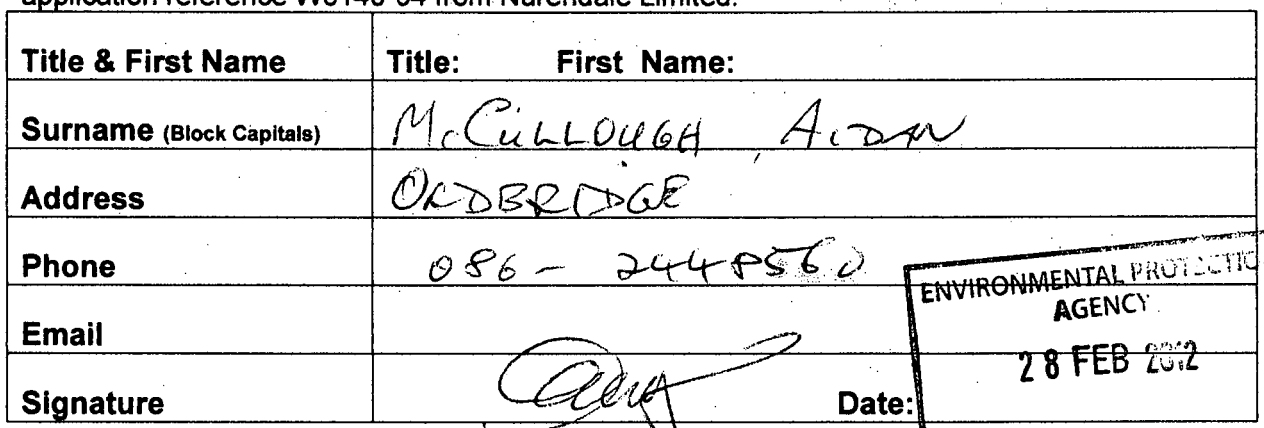 application reference W0140-04 from Nurendale Limited.
Title & First Name Title: First Name:
Surname (Block Capitals) McCULLOUGH, AIDAN
Address OLDBRIDGE
Phone 086 - 2448560
Email
Signature Date:
ENVIRONMENTAL PROTECTIO
AGENCY
28 FEB 2012